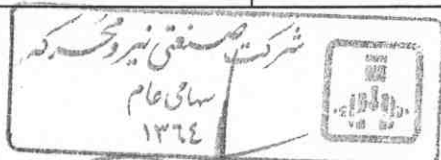 شرکت صنعتی نیرو محرکه
سهامی عام
۱۳٦٤